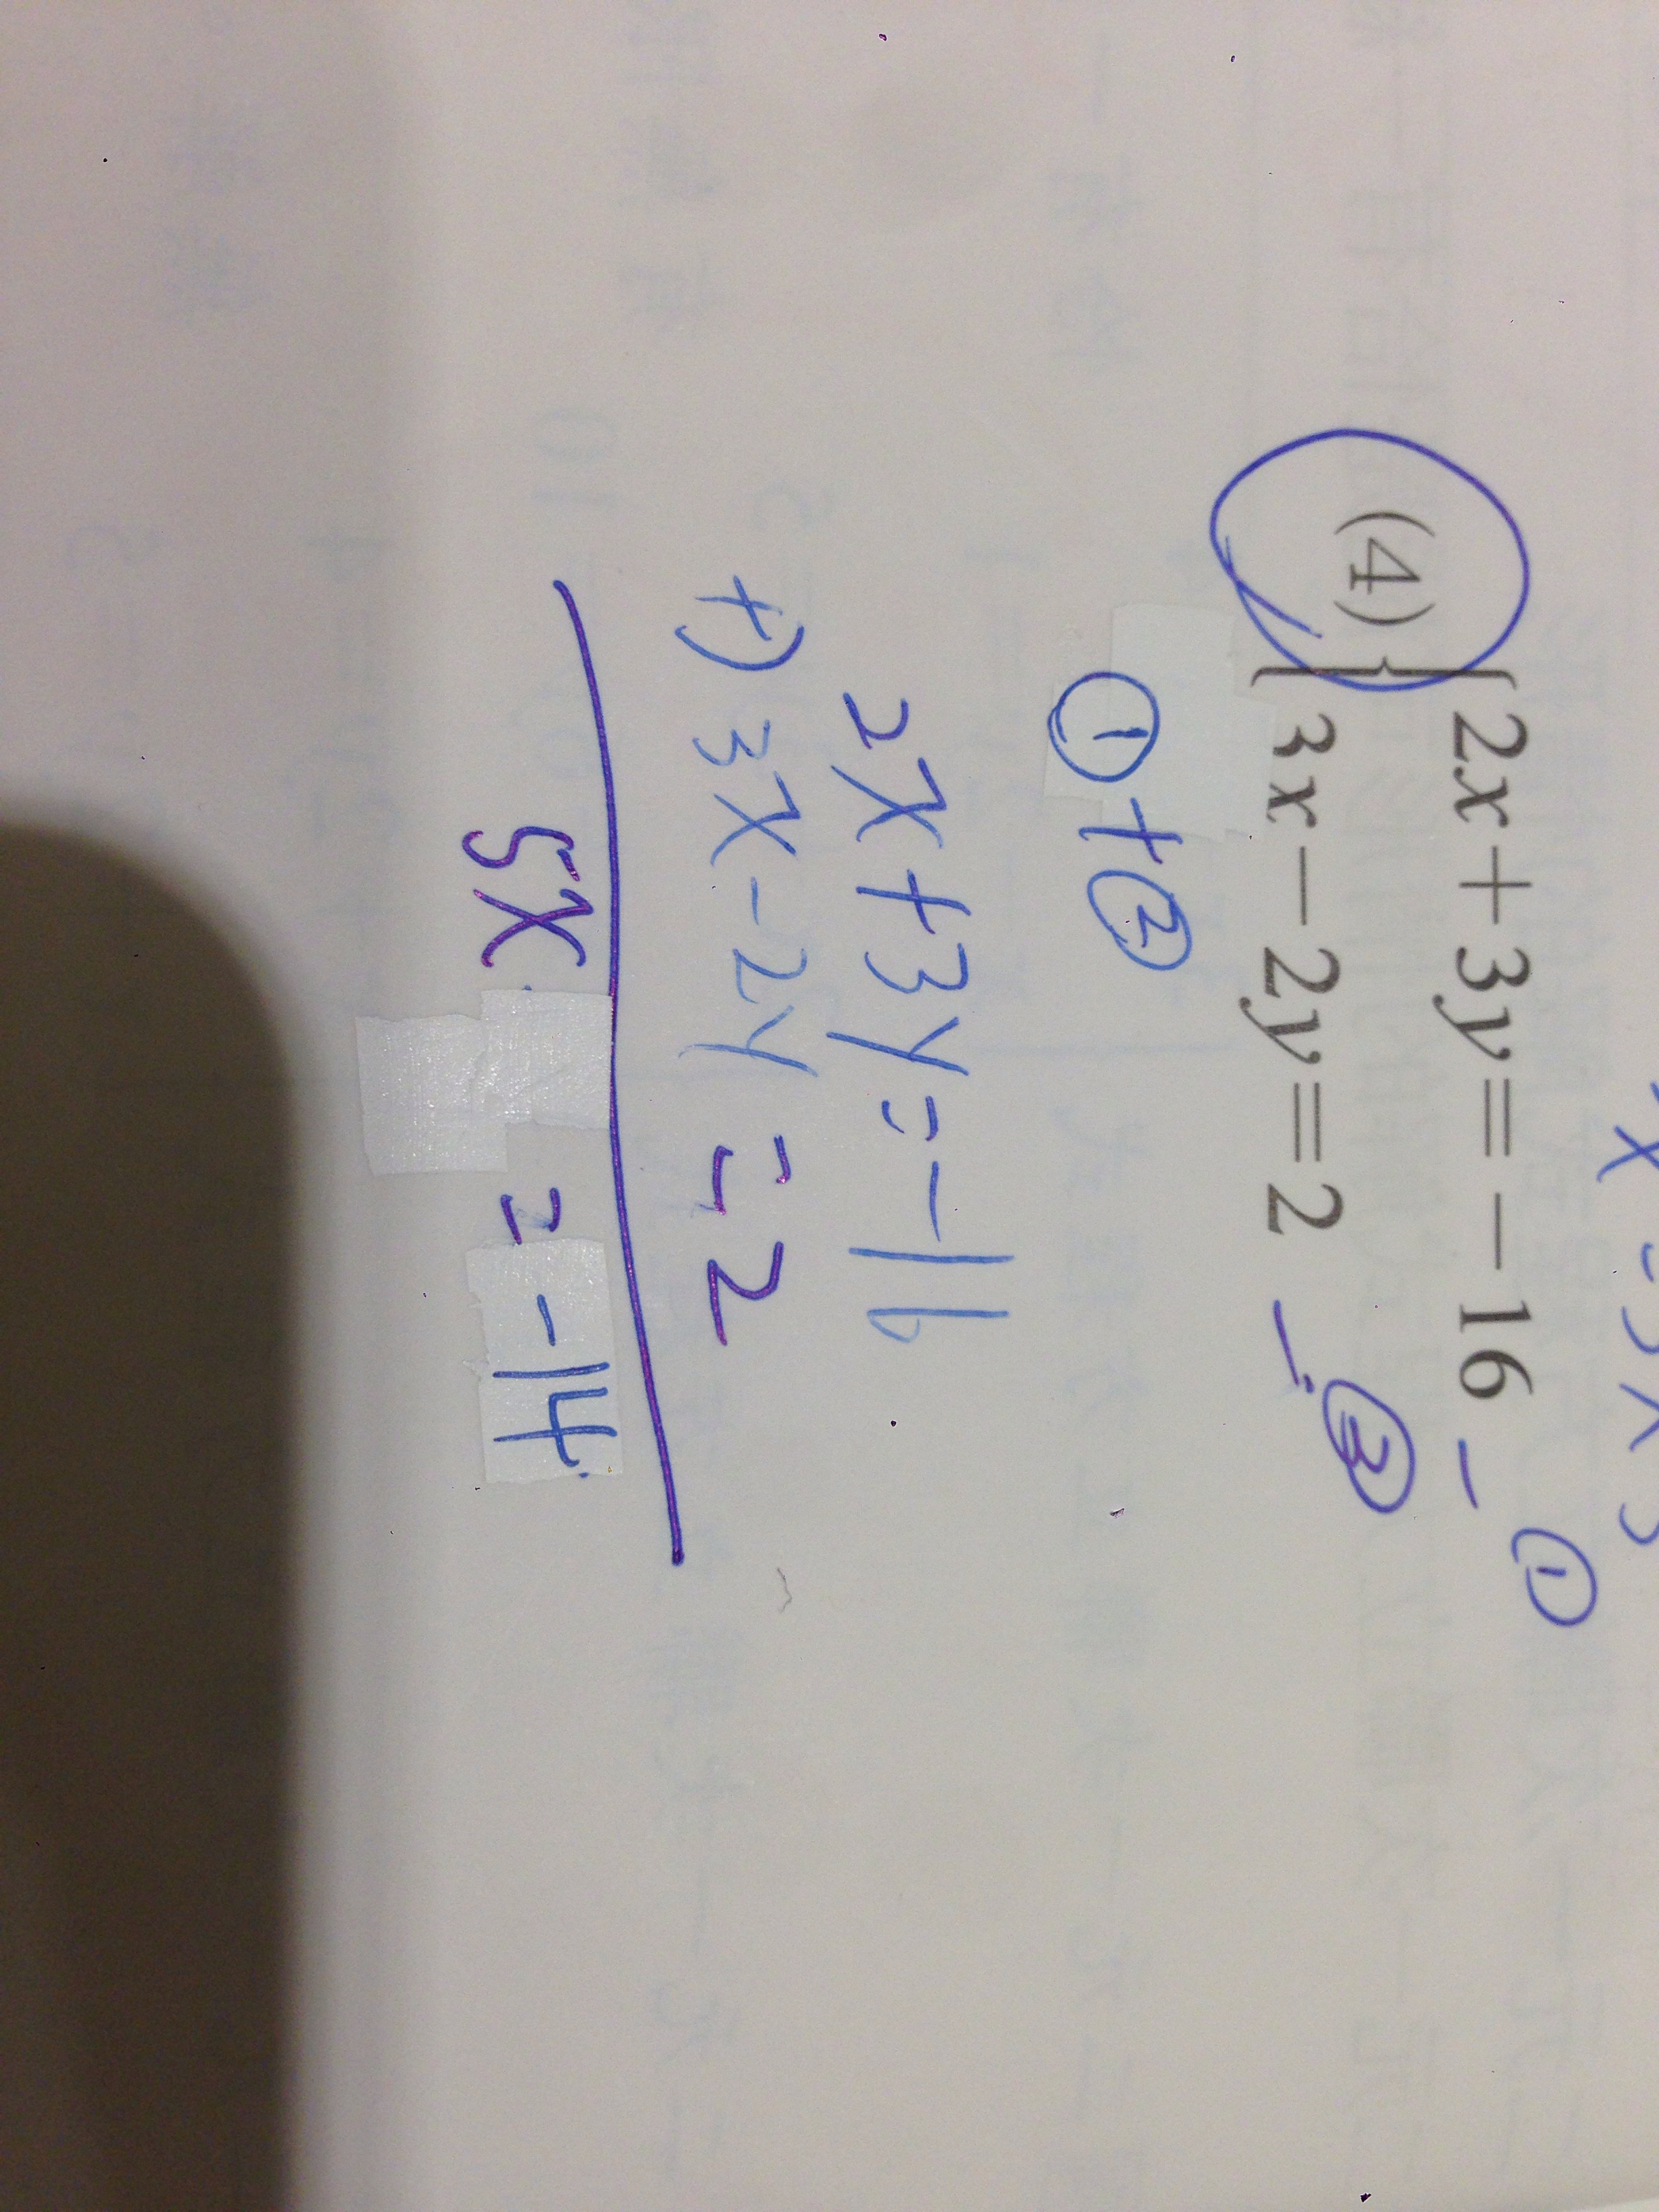 (4) { 2x+3y=-16 - ①
3x-2y=2 - ②
①+②
2x+3y=-16
+) 3x-2y=2
5x = -14